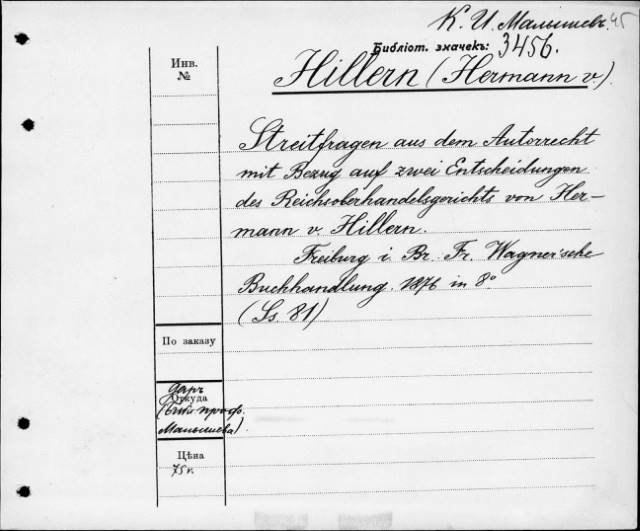 К. И. Малышевъ. 45
Библіот. значекъ: 3456.
Инв.
№
Hillern (Hermann v).
Streitfragen aus dem Autorrecht
mit Bezug auf zwei Entscheidungen
des Reichsoberhandelsgerichts von Her-
mann v. Hillern.
Freiburg i. Br. Fr. Wagner'sche
Buchhandlung. 1876 in 8°
(Ss. 81)
По заказу
даръ
Откуда
(библ. проф.
Малышева).
Цѣна
75 к.